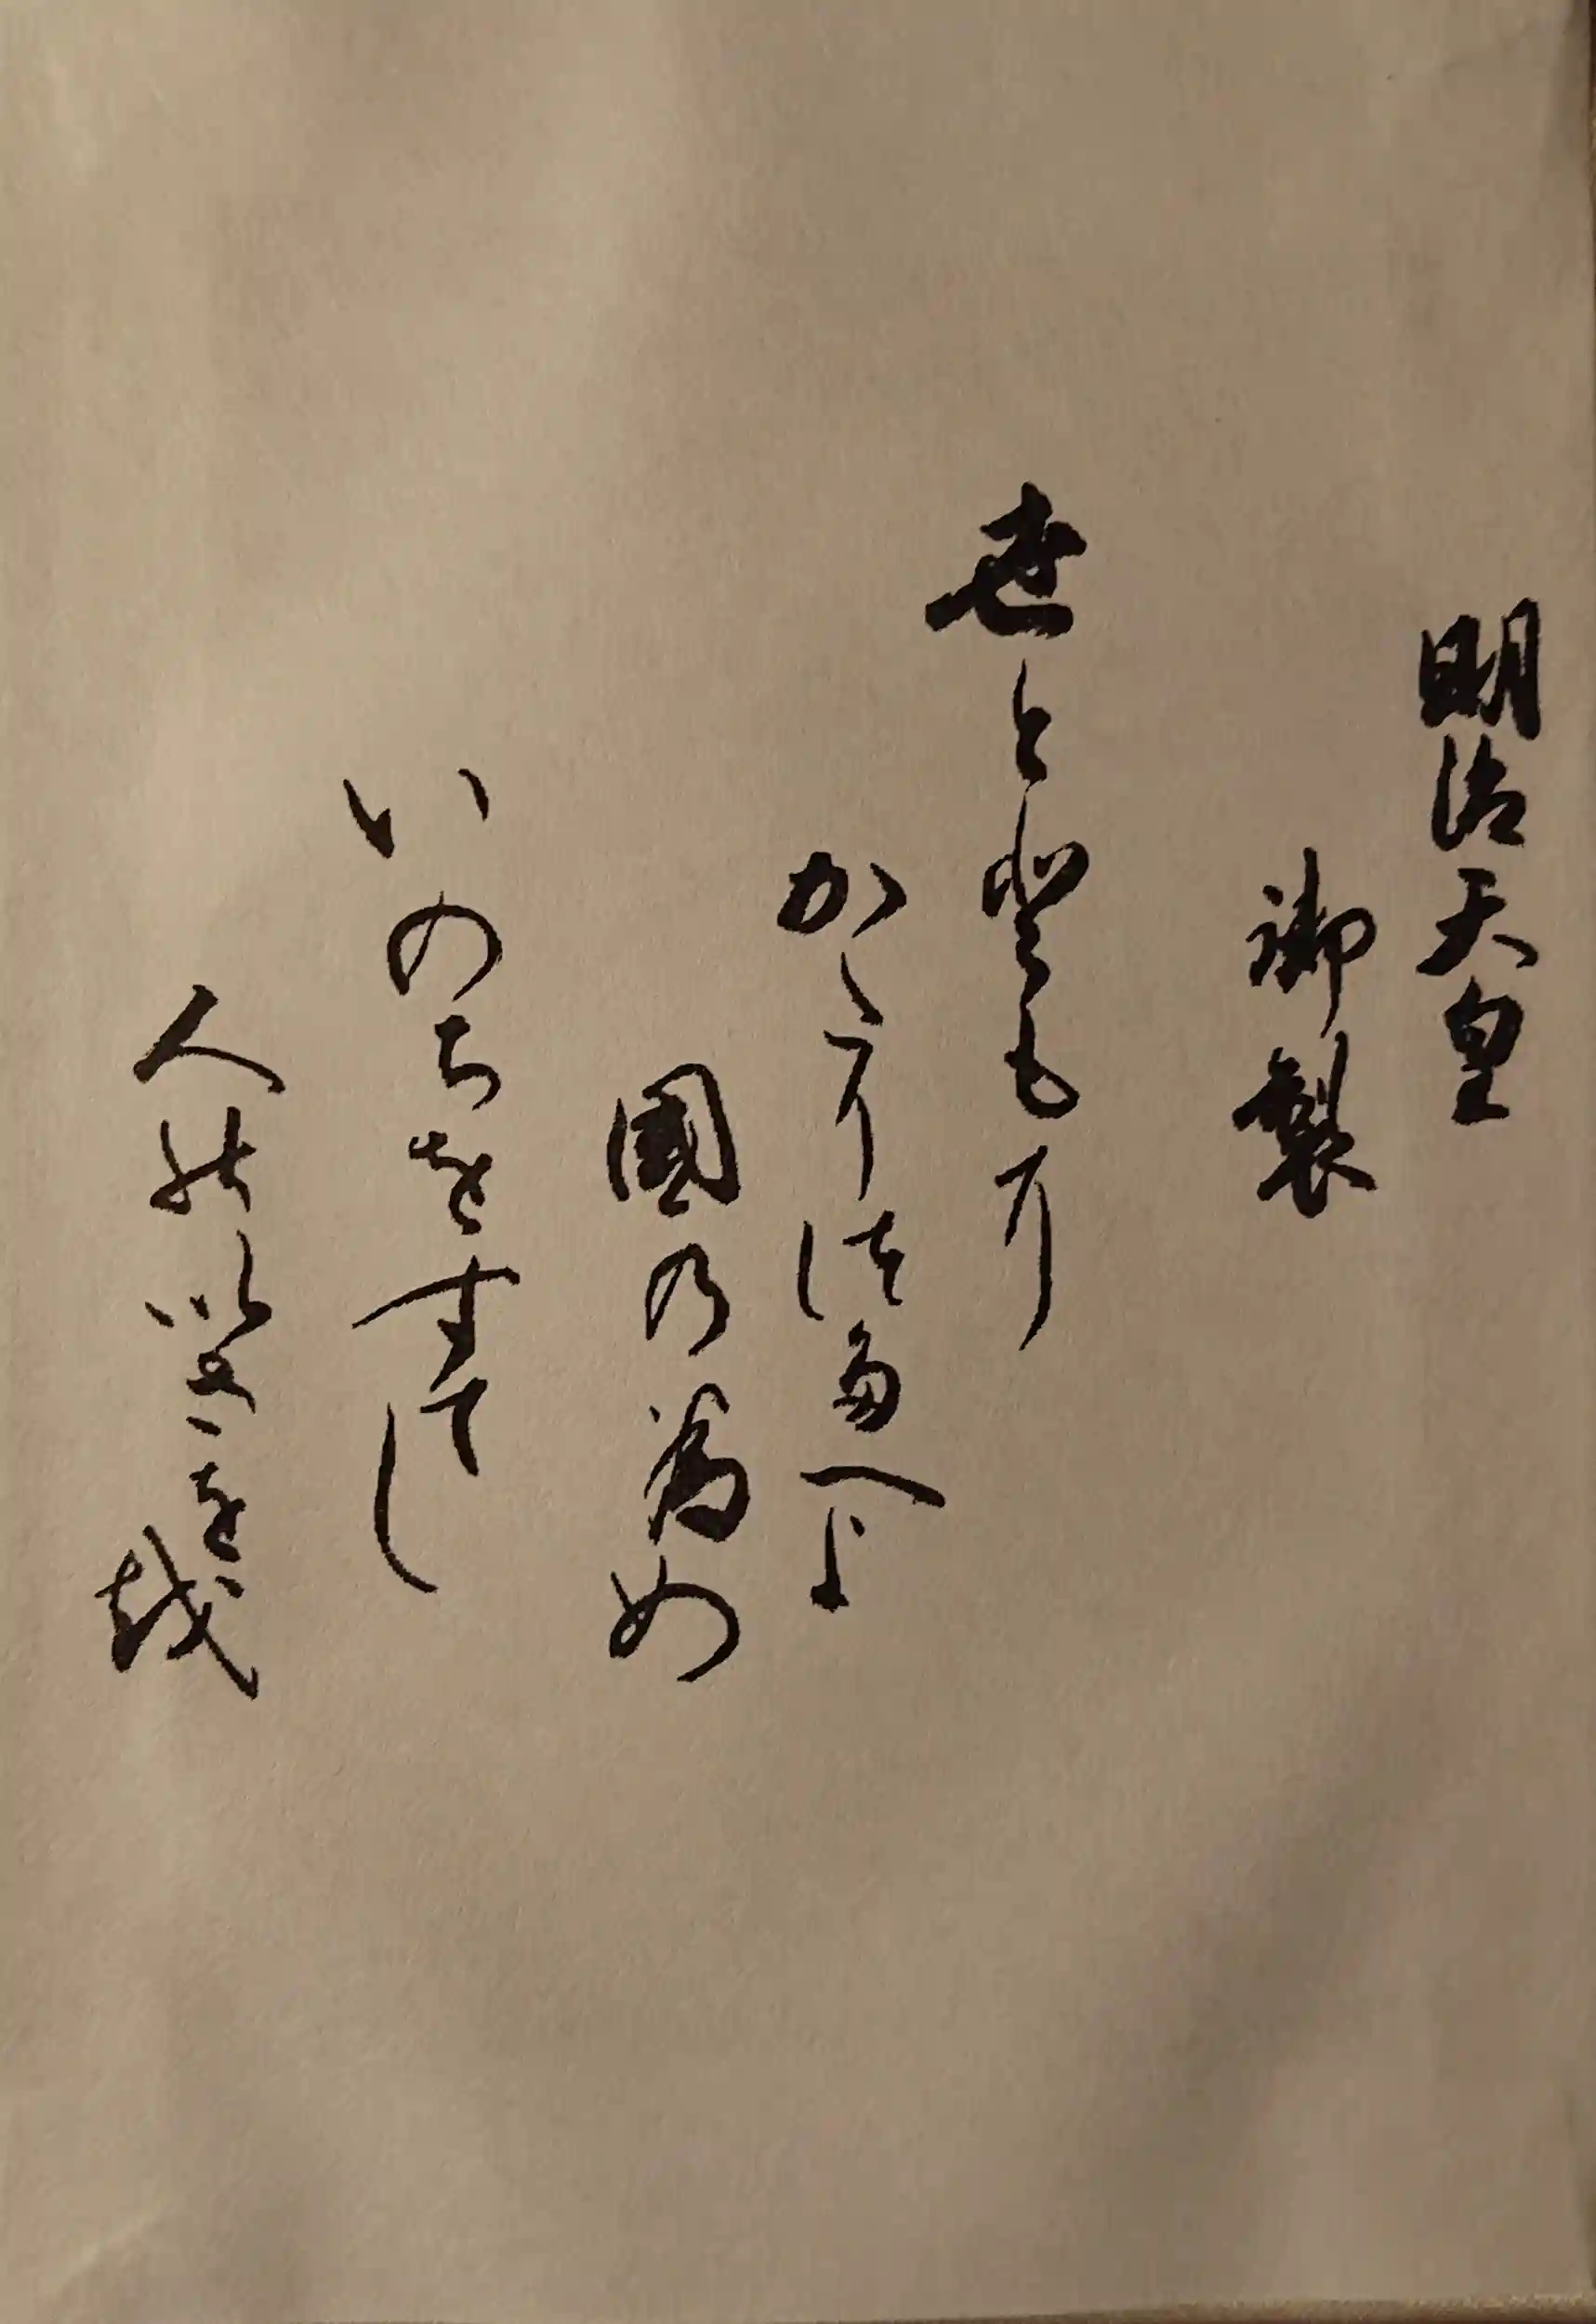 明治天皇
御製
世と登もに
かたりつ多へよ
國乃為め
いのちをすてし
人能いさを越